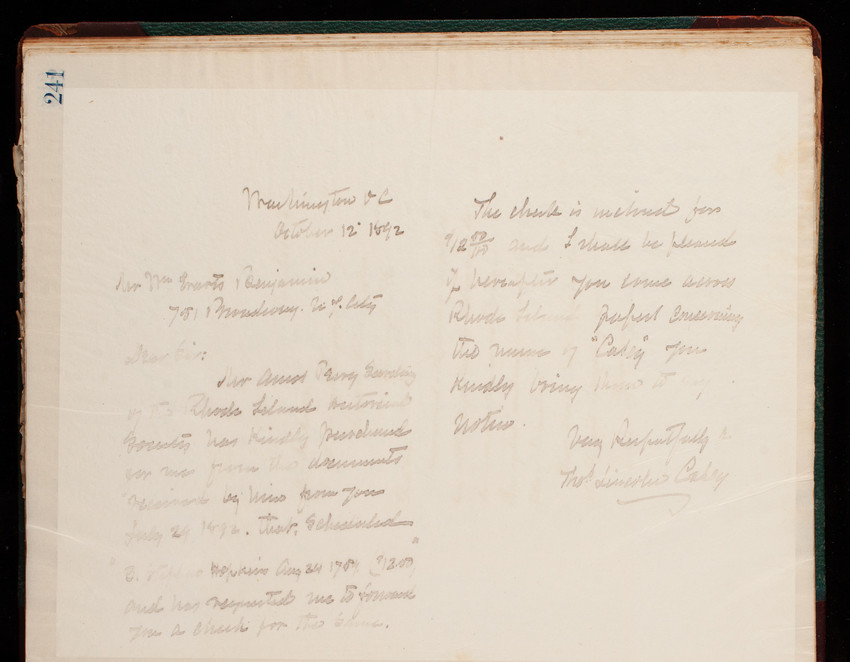 241
Washington D C
October 12" 1892
Mr Wm Evarts Benjamin
751 Broadway. N.Y. City
Dear Sir:
Mr Amos Perry Secretary
of the Rhode Island Historical
Society has kindly purchased
for me from the documents
received by him from you
July 29 1892. that, scheduled
"D. Hopkins Aug 24 178 $12.00"
and has requested me to forward
you a check for the same.
The check is inclosed for
$12 00/100 and I shall be pleased
if hereafter you come across
Rhode Island papers concerning
the name of "Casey" you
kindly bring them to my
notice.
Very Respectfully
Thos Lincoln Casey